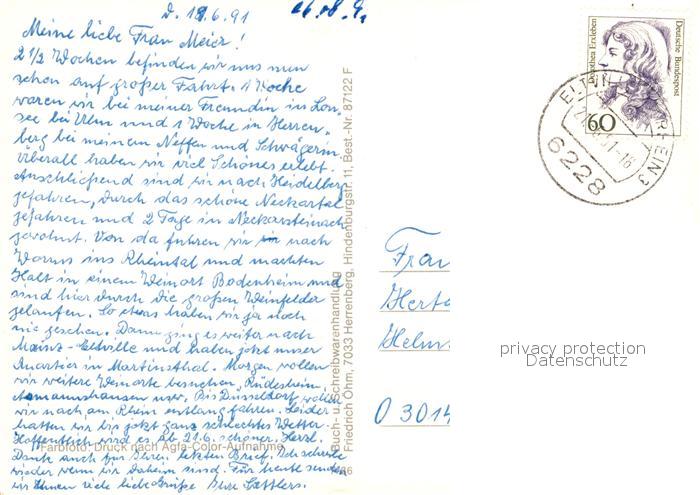 D. 19.6.91
Meine liebe Frau Meier!
2 1/2 Wochen befinden wir uns nun
schon auf großer Fahrt. 1 Woche
waren wir bei meiner Freundin in Lon-
see bei Ulm und 1 Woche in Herren-
berg bei meinem Neffen und Schwägerin
überall haben wir viel Schönes erlebt.
Anschließend sind wir nach Heidelberg
gefahren, durch das schöne Neckartal
gefahren und 2 Tage in Neckarsteinach
gewohnt. Von da fuhren wir nach
Worms ins Rheintal und machten
Halt in einem Weinort Bodenheim und
sind hier durch die großen Weinfelder
gelaufen. So etwas haben wir ja noch
nie gesehen. Dann ging es weiter nach
Mainz-Eltville und haben jetzt unser
Quartier in Martinsthal. Morgen wollen
wir weitere Weinorte besuchen, Rüdesheim,
Assmannshausen usw. Bis Düsseldorf wollen
wir noch am Rhein entlang fahren. Leider
hatten wir bis jetzt ganz schlechtes Wetter.
Hoffentlich wird es ab 21.6. schöner. Herzl.
Dank auch für Ihren letzten Brief. Ich schreibe
wieder wenn wir daheim sind. Für heute senden
wir Ihnen viele liebe Grüße Ihre Sattlers.
Farbfoto: Druck nach Agfa-Color-Aufnahme
Buch- u. Schreibwarenhandlung
Friedrich Öhm, 7033 Herrenberg, Hindenburgstr. 11, Best.-Nr. 87122 F
Dorothea Erxleben
Deutsche Bundespost
60
6228
Frau
Herte
Helm
O 3014
privacy protection
Datenschutz